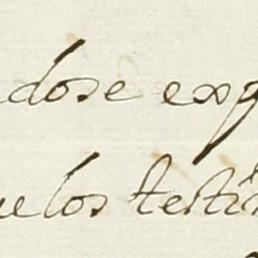 dose exp
ue los testi